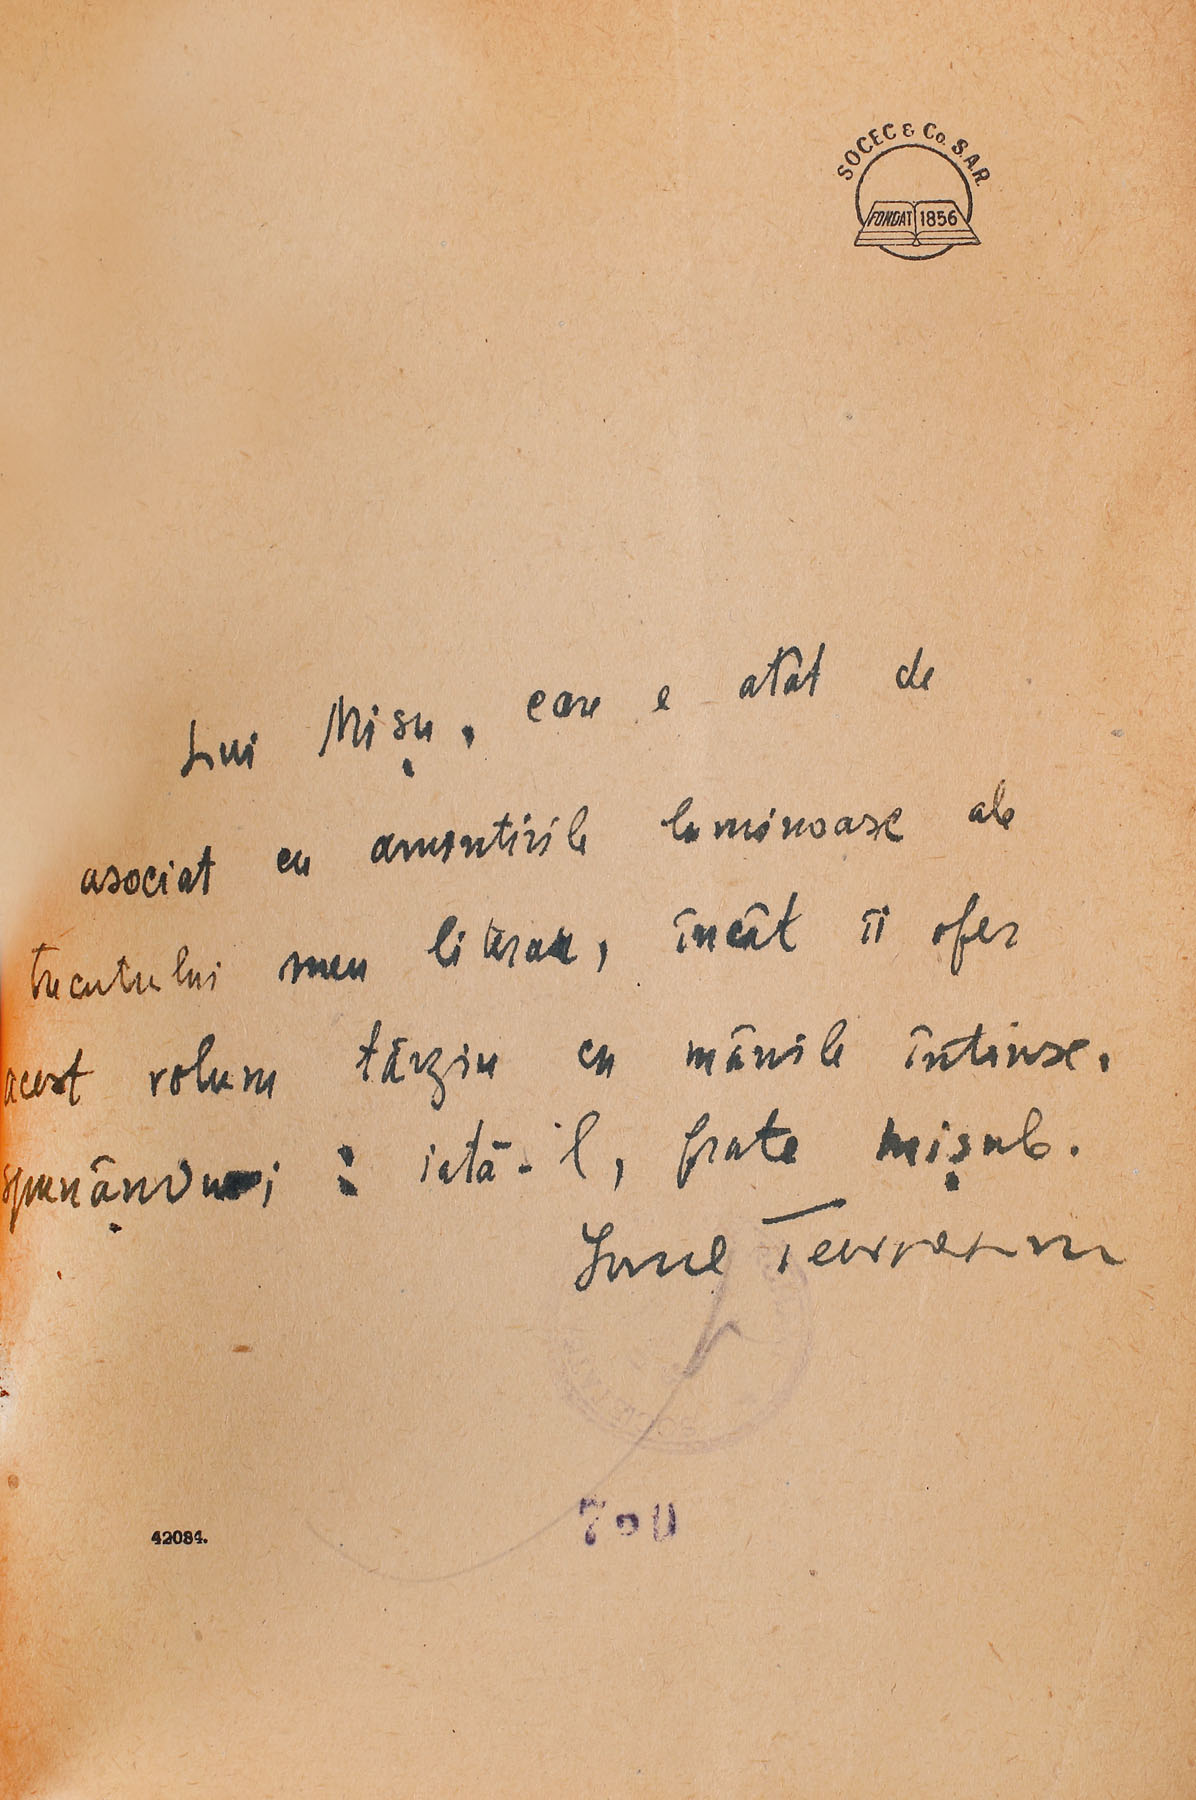 SOCEC & Co. S.A.R.
FONDAT 1856
Lui Mișu, care e atât de
asociat cu amintirile luminoase ale
trecutului meu literar, încât îi ofer
acest volum târziu cu mânile întinse,
spunându-i : iată-l, frate Mișule.
Ionel Teodoreanu
700
42084.